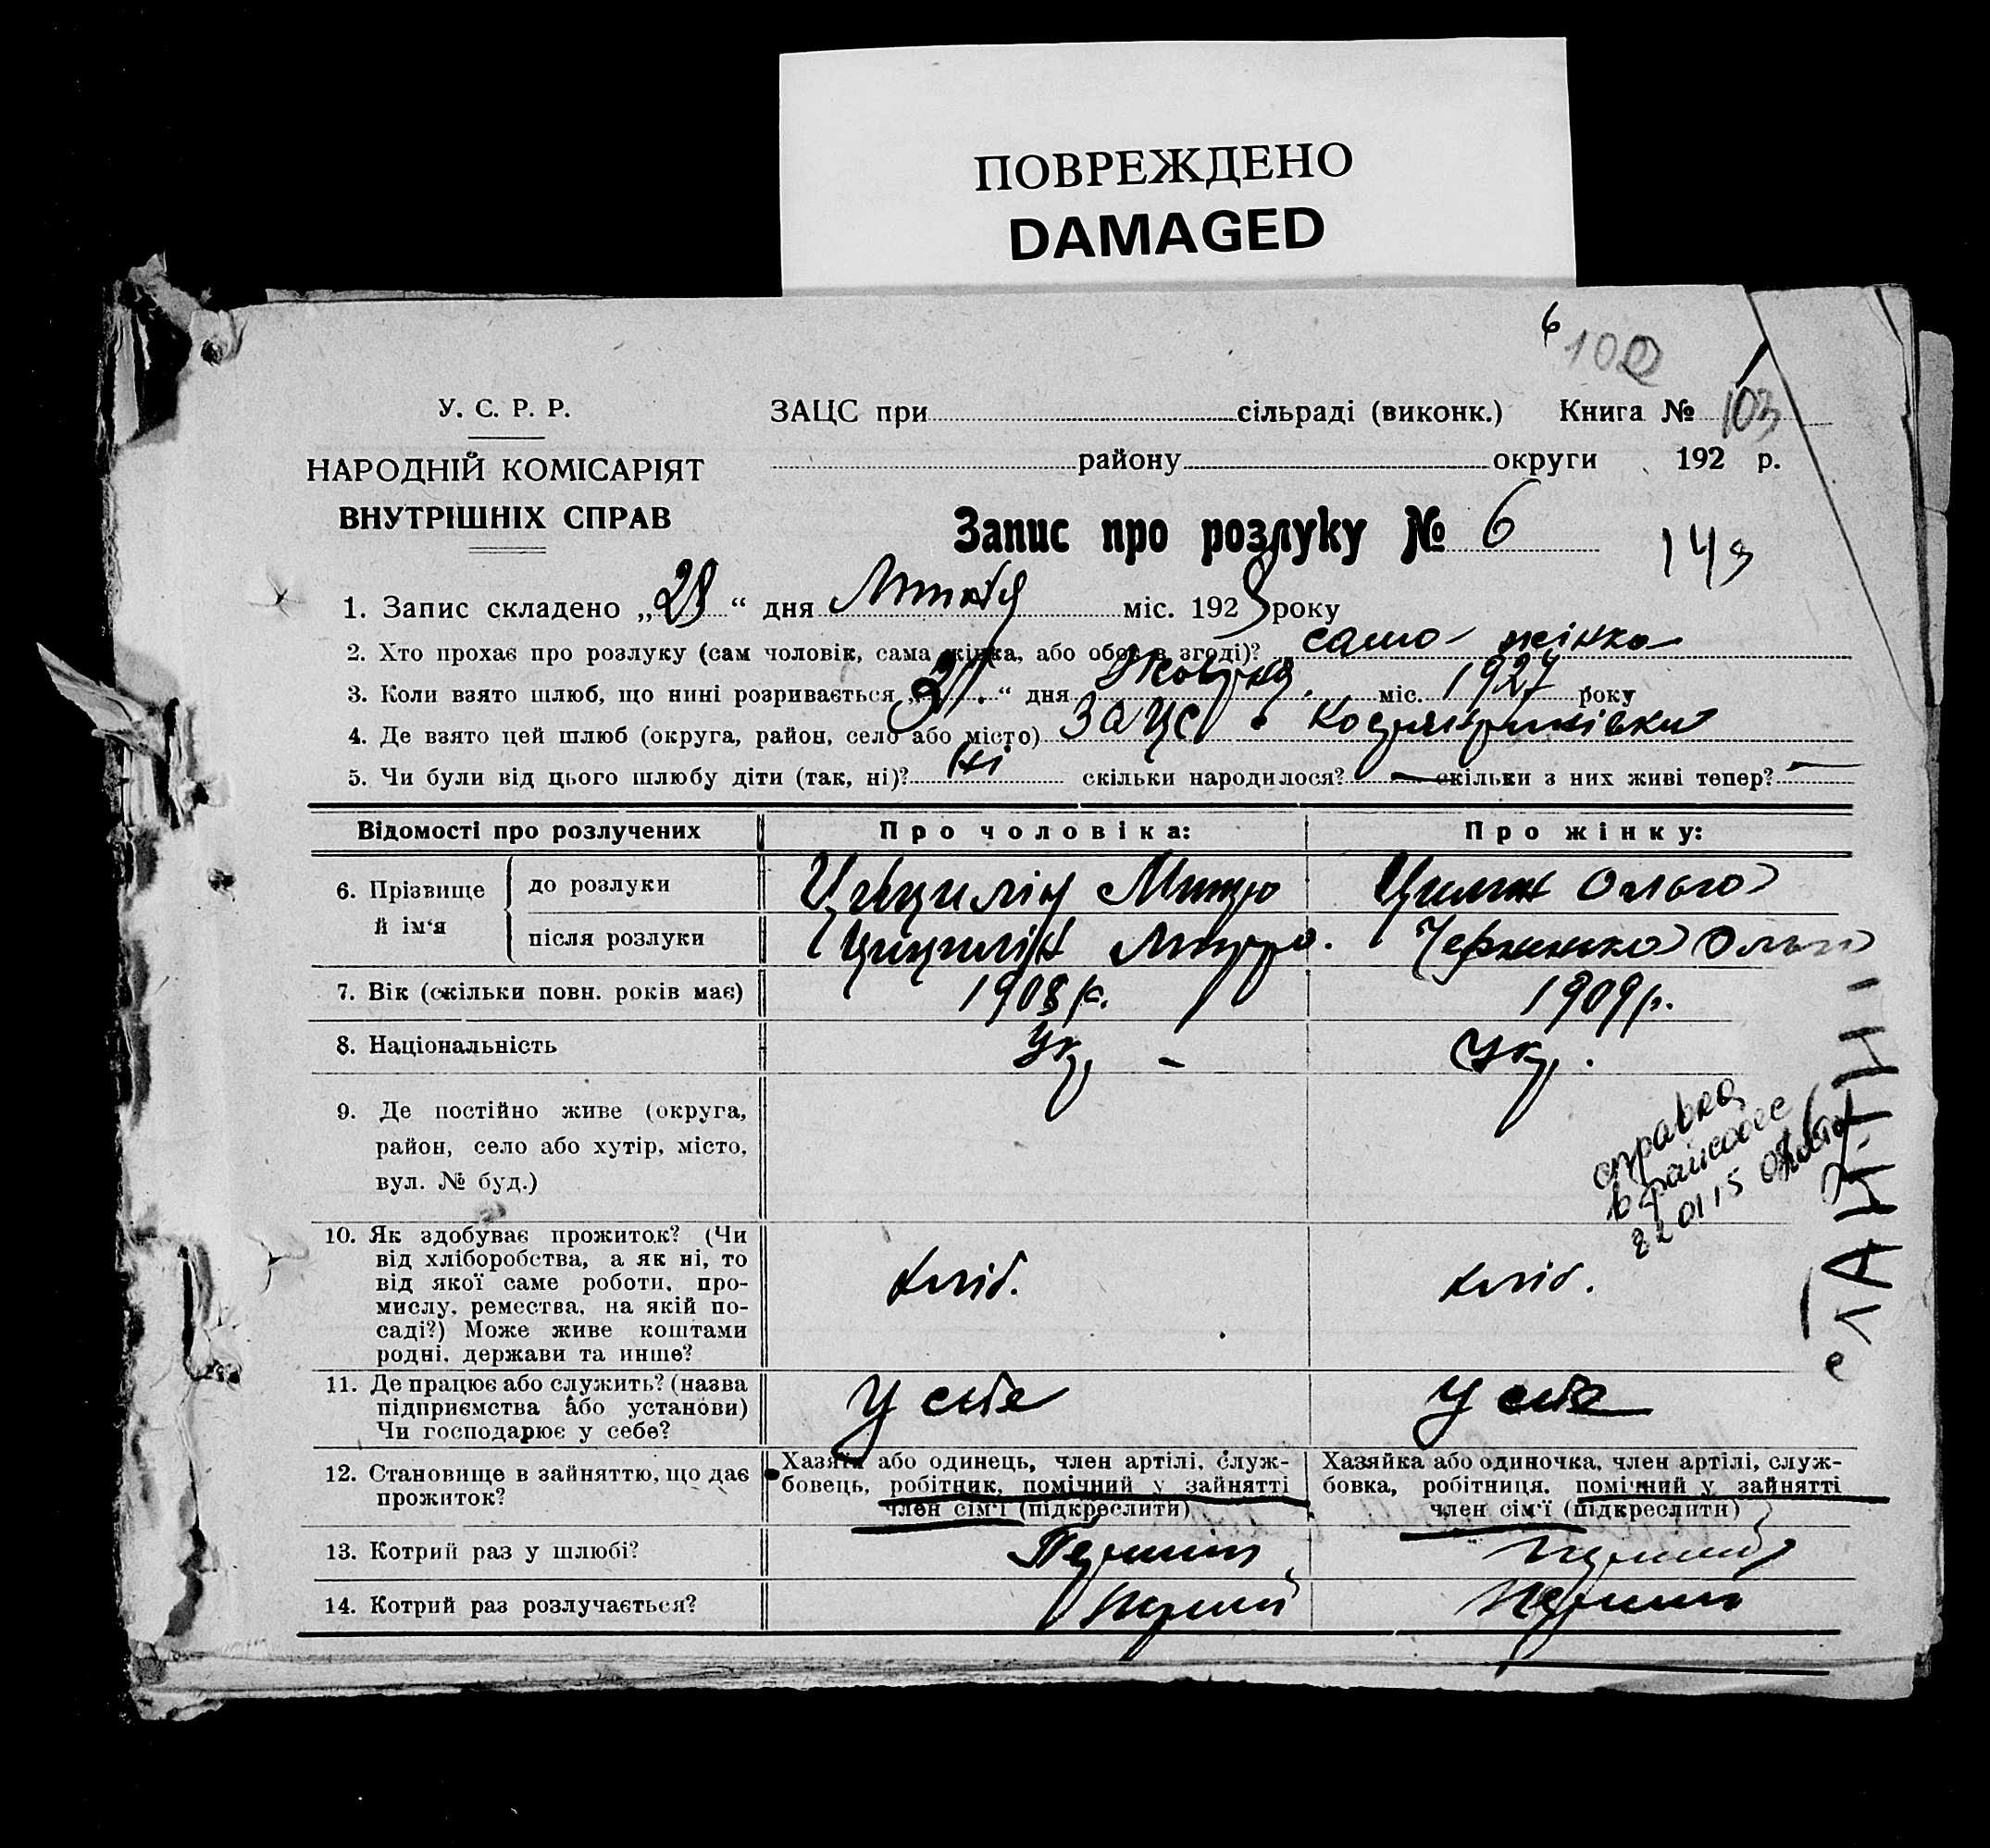 ПОВРЕЖДЕНО
DAMAGED
6
102
У. С. Р. Р.
НАРОДНІЙ КОМІСАРІЯТ
ВНУТРІШНІХ СПРАВ
ЗАЦС при сільраді (виконк.) Книга № 103
району округи 192 р.
Запис про розлуку № 6
143
1. Запис складено „28“ дня Лютня міс. 1928 року
2. Хто прохає про розлуку (сам чоловік, сама жінка, або обоє в згоді)? сама жінка
3. Коли взято шлюб, що нині розривається „ “ дня Жовтня міс. 1927 року
4. Де взято цей шлюб (округа, район, село або місто) ЗАЦС
5. Чи були від цього шлюбу діти (так, ні)? Ні скільки народилося? — скільки з них живі тепер? —
Відомості про розлучених
Про чоловіка:
Про жінку:
6. Прізвище й ім‘я
до розлуки
Митро
Ольга
після розлуки
Митро.
Ольга
7. Вік (скільки повн. років має)
1908 р.
1909 р.
8. Національність
Укр. –
Укр.
9. Де постійно живе (округа,
район, село або хутір, місто,
вул. № буд.)
справка
10. Як здобуває прожиток? (Чи
від хліборобства, а як ні, то
від якої саме роботи, про-
мислу, ремества, на якій по-
саді?) Може живе коштами
родні, держави та инше?
хліб.
хліб.
11. Де працює або служить? (назва
підприємства або установи)
Чи господарює у себе?
У себе
У себе
12. Становище в зайняттю, що дає
прожиток?
Хазяїн або одинець, член артілі, служ-
бовець, робітник, помічний у зайнятті
член сім‘ї (підкреслити)
Хазяйка або одиночка, член артілі, служ-
бовка, робітниця, помічний у зайнятті
член сім‘ї (підкреслити)
13. Котрий раз у шлюбі?
Перший
перший
14. Котрий раз розлучається?
перший
перший